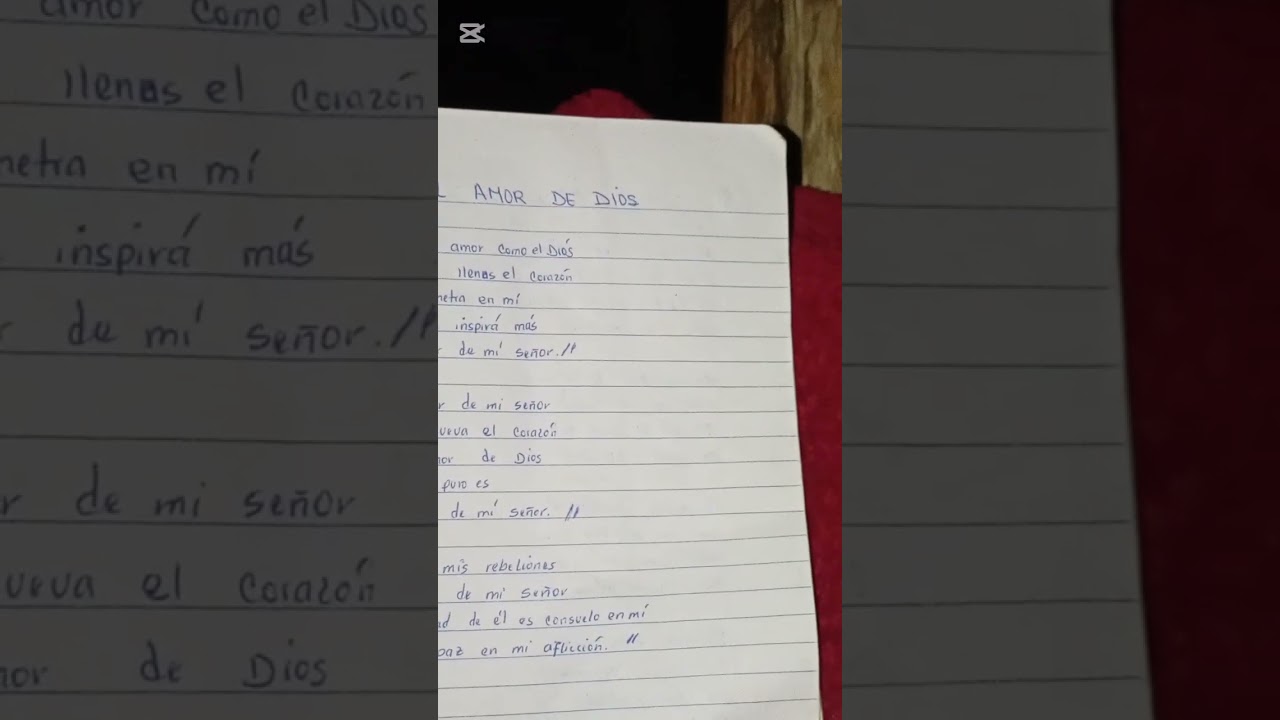 AMOR DE DIOS
amor como el Diós
llenas el corazón
netra en mí
inspirá más
de mí señor. //
r de mi señor
ueva el corazón
or de Dios
puro es
de mí señor. //
mis rebeliones
de mi señor
ad de él es consuelo en mí
paz en mi aflicción. //